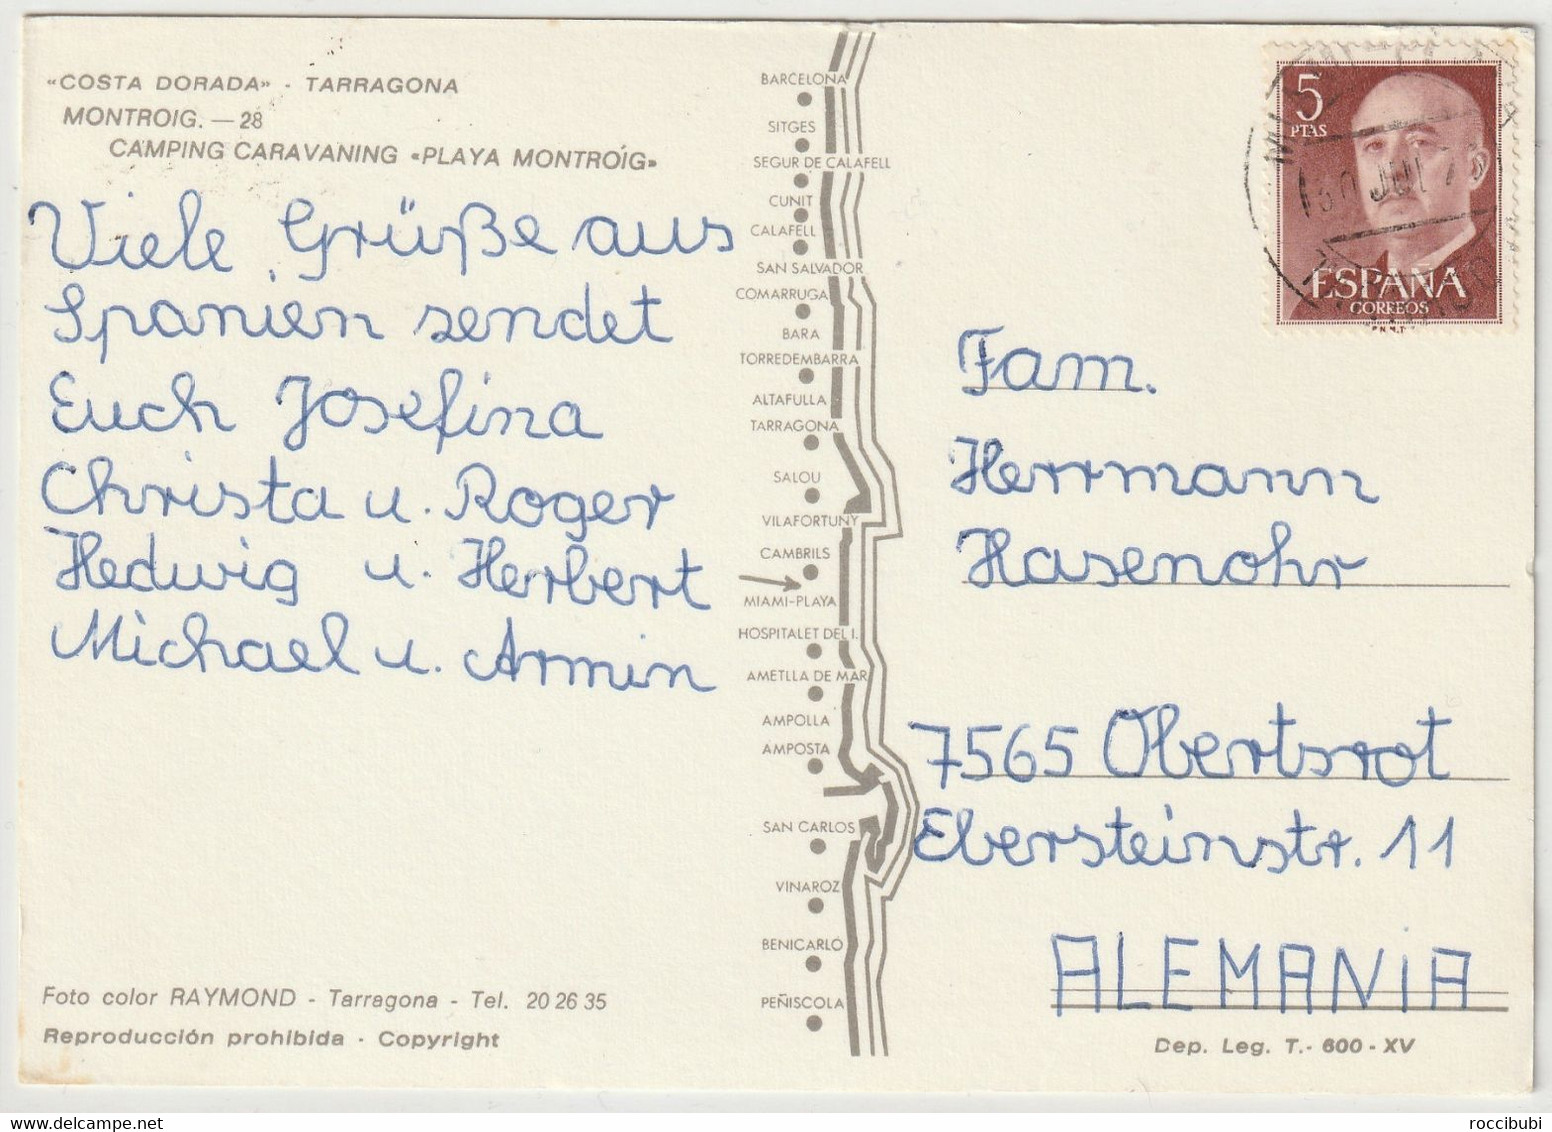 «COSTA DORADA» - TARRAGONA
MONTROIG. — 28
CAMPING CARAVANING «PLAYA MONTROÍG»
Viele Grüße aus
Spanien sendet
Euch Josefina
Christa u. Roger
Hedwig u. Herbert
Michael u. Armin
Foto color RAYMOND - Tarragona - Tel. 20 26 35
Reproducción prohibida - Copyright
BARCELONA
SITGES
SEGUR DE CALAFELL
CUNIT
CALAFELL
SAN SALVADOR
COMARRUGA
BARA
TORREDEMBARRA
ALTAFULLA
TARRAGONA
SALOU
VILAFORTUNY
CAMBRILS
MIAMI-PLAYA
HOSPITALET DEL I.
AMETLLA DE MAR
AMPOLLA
AMPOSTA
SAN CARLOS
VINAROZ
BENICARLÓ
PEÑISCOLA
5
PTAS
ESPAÑA
CORREOS
30 JUL 7
Fam.
Herrmann
Hasenohr
7565 Obertsrot
Ebersteinstr. 11
ALEMANIA
Dep. Leg. T.- 600 - XV
roccibubi